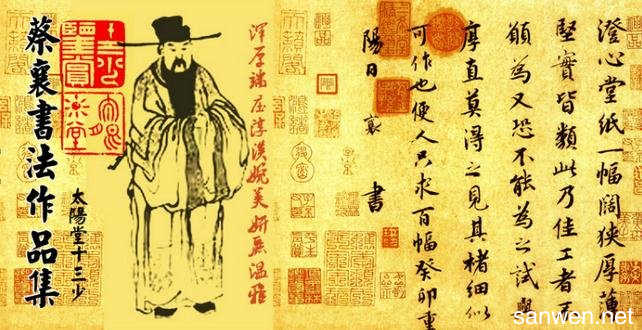 澄心堂紙一幅闊狹厚薄
堅實皆類此乃佳工者不
願為又恐不能為之試與
厚直莫得之見其楮細似
可作也便人只求百幅癸卯重
陽日襄書
渾厚端莊淳淡婉美妍麗溫雅
蔡襄書法作品集
太陽堂十三少
sanwen.net